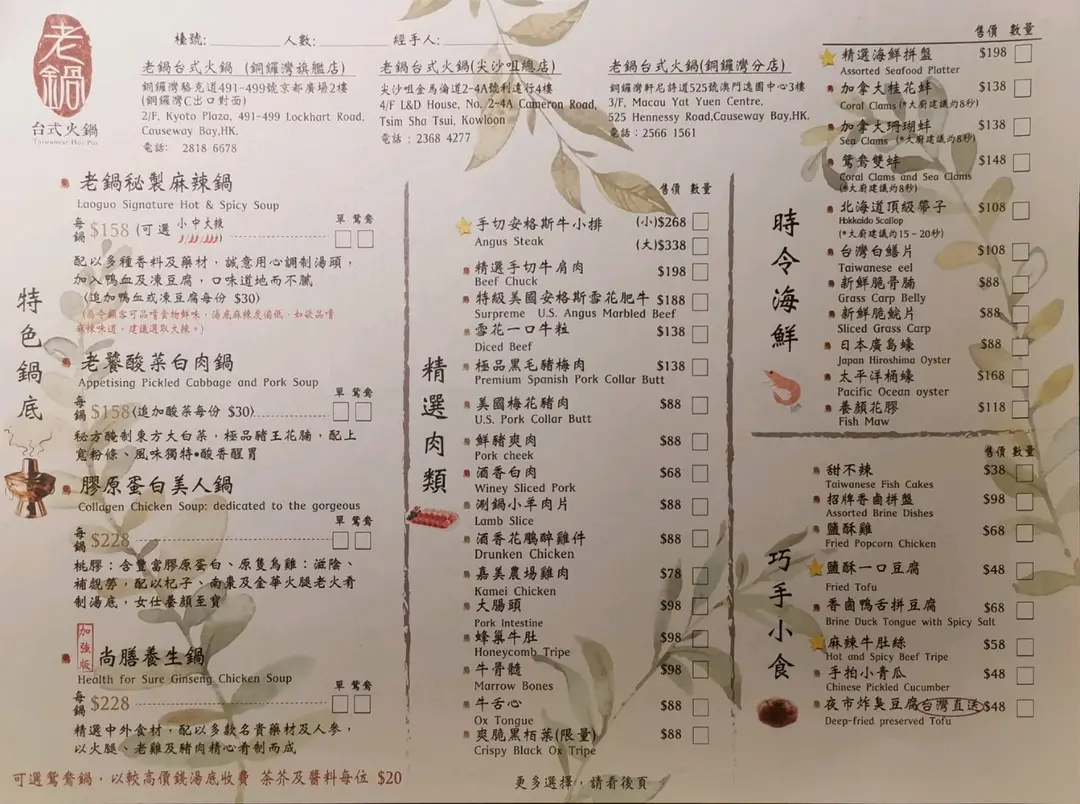 老鍋
台式火鍋
Taiwanese Hot Pot
檯號: 人數: 經手人:
老鍋台式火鍋 (銅鑼灣旗艦店)
銅鑼灣駱克道491-499號京都廣場2樓
(銅鑼灣C出口對面)
2/F, Kyoto Plaza, 491-499 Lockhart Road,
Causeway Bay,HK.
電話: 2818 6678
老鍋台式火鍋(尖沙咀總店)
尖沙咀金馬倫道2-4A號利進行4樓
4/F L&D House, No, 2-4A Cameron Road,
Tsim Sha Tsui, Kowloon
電話 : 2368 4277
老鍋台式火鍋(銅鑼灣分店)
銅鑼灣軒尼詩道525號澳門逸園中心3樓
3/F, Macau Yat Yuen Centre,
525 Hennessy Road,Causeway Bay,HK.
電話 : 2566 1561
特色鍋底
老鍋秘製麻辣鍋
Laoguo Signature Hot & Spicy Soup
單 鴛鴦
每鍋 $158 (可選 小中大辣)
配以多種香料及藥材, 誠意用心調制湯頭,
加入鴨血及凍豆腐, 口味道地而不膩
(追加鴨血或凍豆腐每份 $30)
(為令顧客可品嚐食物鮮味, 湯底麻辣度偏低, 如欲品嚐
麻辣味道, 建議選取大辣。)
老饕酸菜白肉鍋
Appetising Pickled Cabbage and Pork Soup
單 鴛鴦
每鍋 $158 (追加酸菜每份 $30)
秘方醃制東方大白菜, 極品豬王花腩, 配上
寬粉條、風味獨特•酸香醒胃
膠原蛋白美人鍋
Collagen Chicken Soup: dedicated to the gorgeous
單 鴛鴦
每鍋 $228
桃膠: 含豐富膠原蛋白、原隻烏雞: 滋陰、
補靚勞, 配以杞子、南棗及金華火腿老火肴
制湯底, 女仕養顏至寶
加強版
尚膳養生鍋
Health for Sure Ginseng Chicken Soup
單 鴛鴦
每鍋 $228
精選中外食材, 配以多款名貴藥材及人參,
以火腿、老雞及豬肉精心肴制而成
可選鴛鴦鍋, 以較高價錢湯底收費 茶芥及醬料每位 $20
精選肉類
售價 數量
手切安格斯牛小排 (小)$268
Angus Steak (大)$338
精選手切牛肩肉 $198
Beef Chuck
特級美國安格斯雪花肥牛 $188
Surpreme U.S. Angus Marbled Beef
雪花一口牛粒 $138
Diced Beef
極品黑毛豬梅肉 $138
Premium Spanish Pork Collar Butt
美國梅花豬肉 $88
U.S. Pork Collar Butt
鮮豬爽肉 $88
Pork cheek
酒香白肉 $68
Winey Sliced Pork
涮鍋小羊肉片 $88
Lamb Slice
酒香花鵰醉雞件 $88
Drunken Chicken
嘉美農場雞肉 $78
Kamei Chicken
大腸頭 $98
Pork Intestine
蜂巢牛肚 $98
Honeycomb Tripe
牛骨髓 $98
Marrow Bones
牛舌心 $88
Ox Tongue
爽脆黑栢葉(限量) $88
Crispy Black Ox Tripe
更多選擇, 請看後頁
時令海鮮
售價 數量
精選海鮮拼盤 $198
Assorted Seafood Platter
加拿大桂花蚌 $138
Coral Clams (*大廚建議約8秒)
加拿大珊瑚蚌 $138
Sea Clams (*大廚建議約8秒)
鴛鴦雙蚌 $148
Coral Clams and Sea Clams
(*大廚建議約8秒)
北海道頂級帶子 $108
Hokkaido Scallop
(*大廚建議約15-20秒)
台灣白鱔片 $108
Taiwanese eel
新鮮脆骨腩 $88
Grass Carp Belly
新鮮脆鯇片 $88
Sliced Grass Carp
日本廣島蠔 $88
Japan Hiroshima Oyster
太平洋桶蠔 $168
Pacific Ocean oyster
養顏花膠 $118
Fish Maw
巧手小食
售價 數量
甜不辣 $38
Taiwanese Fish Cakes
招牌香鹵拼盤 $98
Assorted Brine Dishes
鹽酥雞 $68
Fried Popcorn Chicken
鹽酥一口豆腐 $48
Fried Tofu
香鹵鴨舌拼豆腐 $68
Brine Duck Tongue with Spicy Salt
麻辣牛肚絲 $58
Hot and Spicy Beef Tripe
手拍小青瓜 $48
Chinese Pickled Cucumber
夜市炸臭豆腐 台灣直送 $48
Deep-fried preserved Tofu